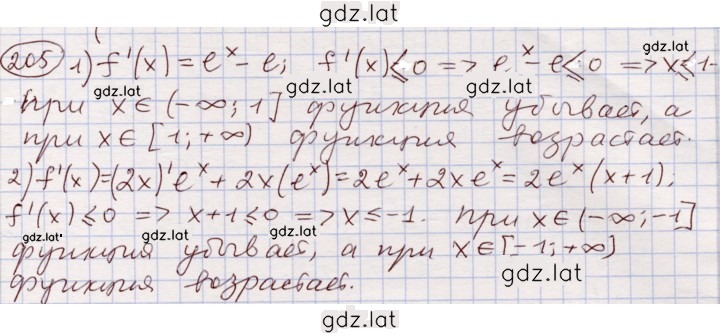 gdz.lat
205 1) f'(x) = e^x - e; f'(x) ≤ 0 => e^x - e ≤ 0 => x ≤ 1.
gdz.lat gdz.lat
при x ∈ (-∞; 1] функция убывает, а
gdz.lat
при x ∈ [1; +∞) функция возрастает.
gdz.lat gdz.lat
2) f'(x) = (2x)'e^x + 2x(e^x) = 2e^x + 2xe^x = 2e^x(x+1);
gdz.lat
f'(x) ≤ 0 => x+1 ≤ 0 => x ≤ -1. при x ∈ (-∞; -1]
gdz.lat gdz.lat
функция убывает, а при x ∈ [-1; +∞)
gdz.lat
функция возрастает.
gdz.lat
gdz.lat